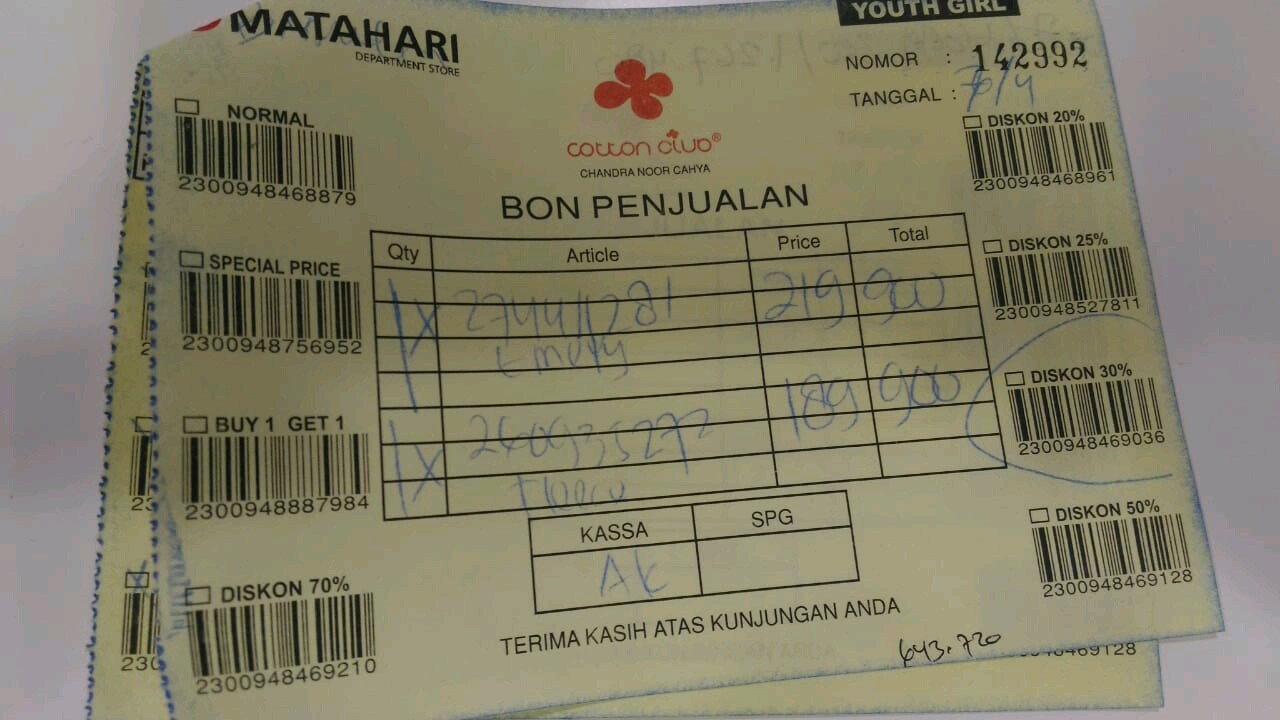 MATAHARI
DEPARTMENT STORE
YOUTH GIRL
NOMOR : 142992
TANGGAL : /4
cotton club®
CHANDRA NOOR CAHYA
BON PENJUALAN
NORMAL
2300948468879
SPECIAL PRICE
2300948756952
BUY 1 GET 1
2300948887984
DISKON 70%
2300948469210
Qty Article Price Total
1x 27441281 219 900
1x 189 900
KASSA SPG
AK
TERIMA KASIH ATAS KUNJUNGAN ANDA
643.720
DISKON 20%
2300948468961
DISKON 25%
2300948527811
DISKON 30%
2300948469036
DISKON 50%
2300948469128